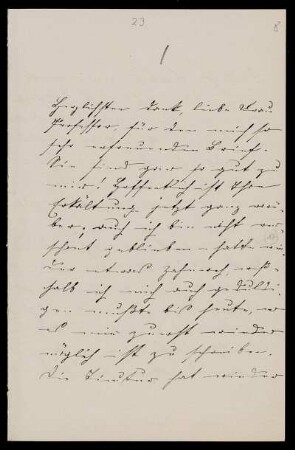 23
8
1
Herzlichsten Dank, liebe Frau
Professor, für den mich so
sehr erfreuenden Brief.
Sie sind gar so gut zu
mir! Hoffentlich ist Ihre
Erkältung jetzt ganz vorü-
ber, auch ich bin nicht ver-
schont geblieben – hatte wie-
der etwas Zahnweh, weß-
halb ich mich auch geduld-
igen mußte bis heute, wo
es mir zuerst wieder
möglich ist zu schreiben.
Die hat wieder